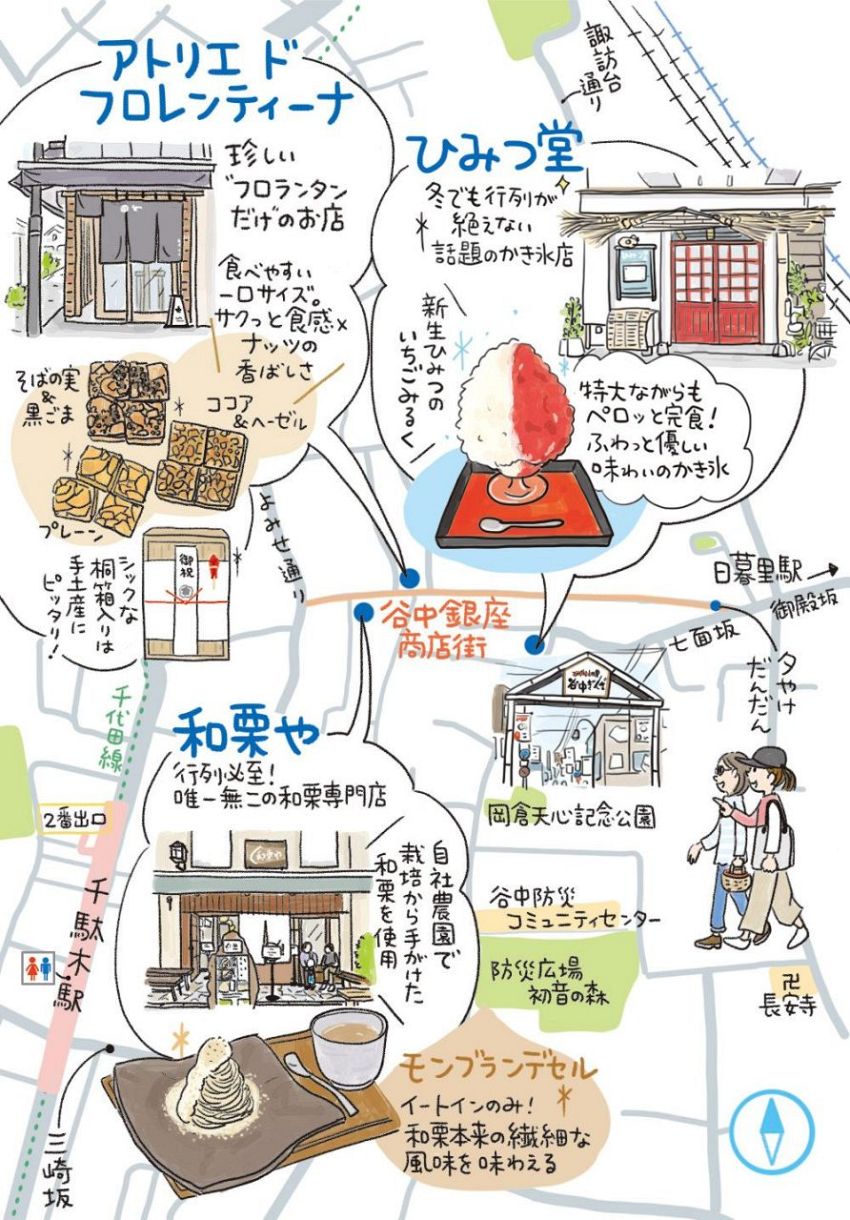 アトリエ ド
フロレンティーナ
珍しい
"フロランタン
だけ"のお店
食べやすい
一口サイズ。
サクっと食感×
ナッツの
香ばしさ
そばの実
&
黒ごま
ココア
&ヘーゼル
プレーン
御祝
シックな
桐箱入りは
手土産に
ピッタリ!
諏訪台
通り
ひみつ堂
冬でも行列が
絶えない
話題のかき氷店
新生ひみつの
いちごみるく
特大ながらも
ペロッと完食!
ふわっと優しい
味わいのかき氷
よみせ通り
谷中銀座
商店街
日暮里駅
御殿坂
七面坂
夕やけ
だんだん
谷中ぎんざ
千代田線
2番出口
千駄木駅
三崎坂
和栗や
行列必至!
唯一無二の和栗専門店
和栗や
自社農園で
栽培から手がけた
和栗を使用
モンブランデセル
イートインのみ!
和栗本来の繊細な
風味を味わえる
岡倉天心記念公園
谷中防災
コミュニティセンター
防災広場
初音の森
卍
長安寺